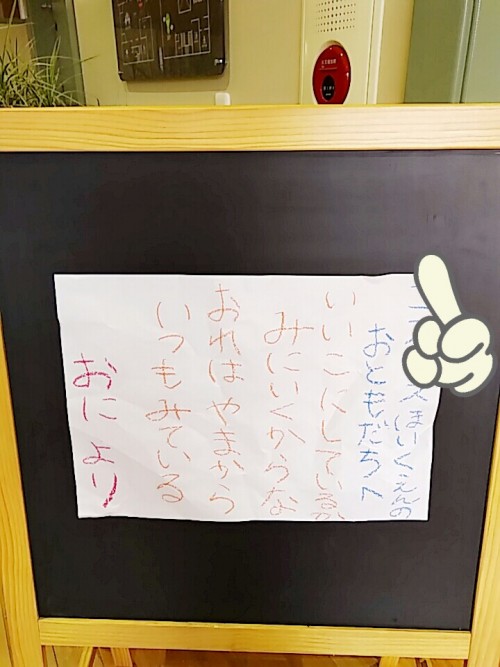 ほいくえんの
おともだちへ
いいこにしているか
みにいくからな
おれはやまから
いつもみている
おにより